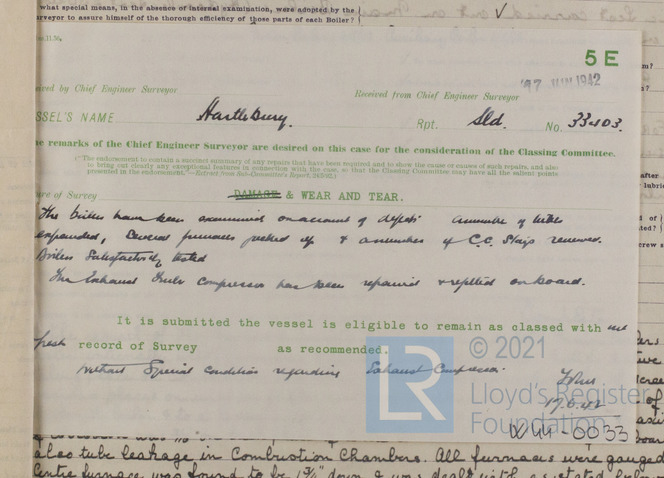 what special means, in the absence of internal examination, were adopted by the
rveyor to assure himself of the thorough efficiency of those parts of each Boiler?
5 E
JUN 1942
ived by Chief Engineer Surveyor
Received from Chief Engineer Surveyor
SSEL'S NAME Hartlebury. Rpt. Sld. No. 33403.
e remarks of the Chief Engineer Surveyor are desired on this case for the consideration of the Classing Committee.
The endorsement to contain a succinct summary of any repairs that have been required and to show the cause or causes of such repairs, and also
to bring out clearly any exceptional features in connection with the case, so that the Classing Committee may have all the salient points
presented in the endorsement.
ure of Survey DAMAGE & WEAR AND TEAR.
The boilers have been examined on account of defects. A number of tubes
expanded, Several furnaces jacked up & a number of C.C. Stays renewed.
Boilers Satisfactorily tested
The Exhaust Turbo Compressor has been repaired & refitted on board.
It is submitted the vessel is eligible to remain as classed with out
fresh record of Survey as recommended.
without Special Condition regarding Exhaust Compressor.
17.6.42
© 2021
LR
Lloyd's Register
Foundation
W44-0033
also tube leakage in Combustion Chambers. All furnaces were gauged
Centre furnace was found to be down & was dealt with as stated below